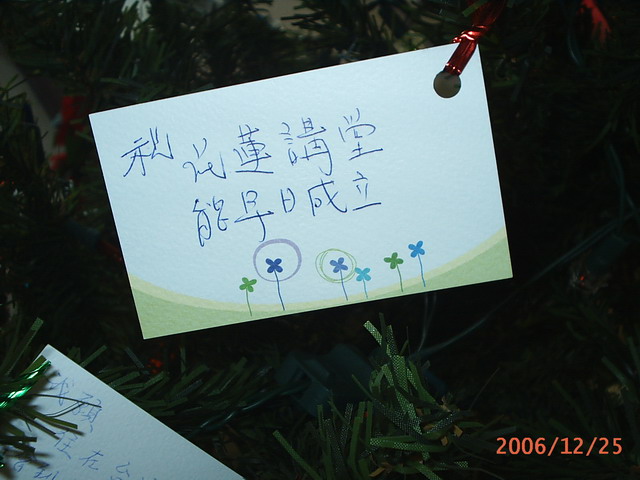 祝 花蓮講堂
能早日成立
在
2006/12/25